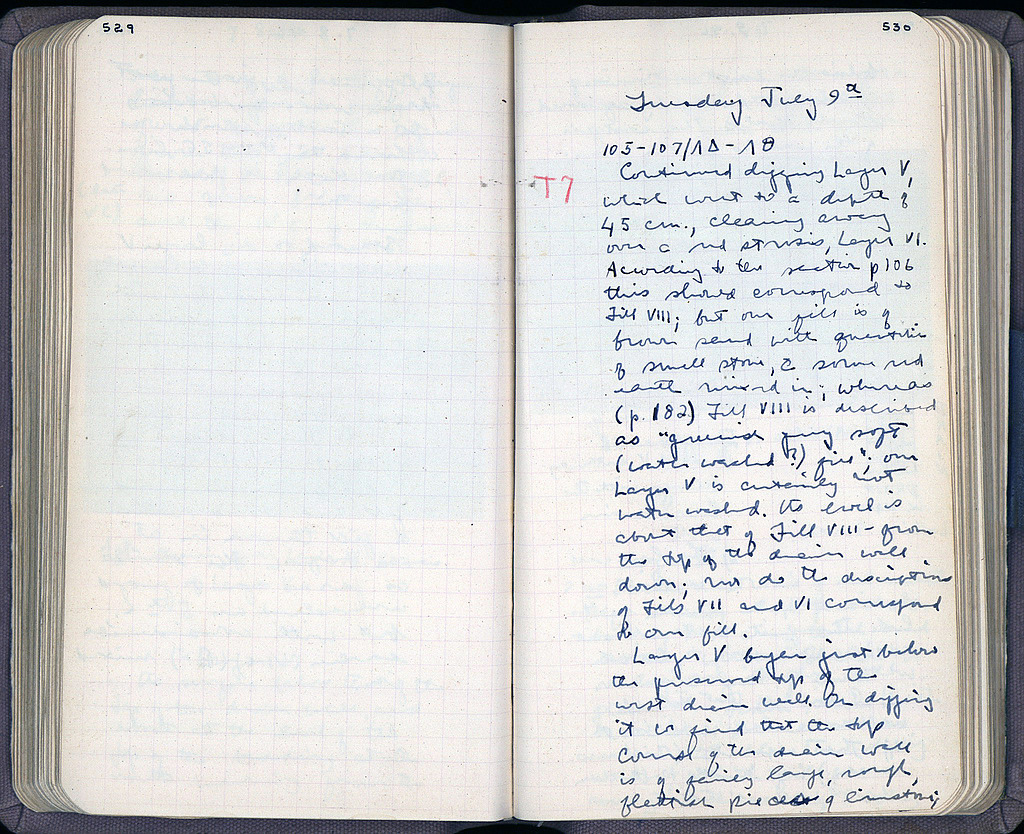 529
530
Tuesday July 9
105-107/ΛΔ-ΛΘ
T7
Continued digging Layer V,
which went to a depth of
45 cm., cleaning away
over a red strosis, Layer VI.
According to the section p 106
this should correspond to
Fill VIII; but our fill is of
brown sand with quantities
of small stone, & some red
earth mixed in; whereas
(p. 182) Fill VIII is described
as "greenish grey soft
(water washed?) fill"; our
Layer V is certainly not
water washed. Its level is
about that of Fill VIII - from
the top of the drain wall
down; nor do the descriptions
of Fills VII and VI correspond
to our fill.
Layer V began just below
the preserved top of the
west drain wall. On digging
it we find that the top
course of the drain wall
is of fairly large, rough,
flattish pieces of limestone,